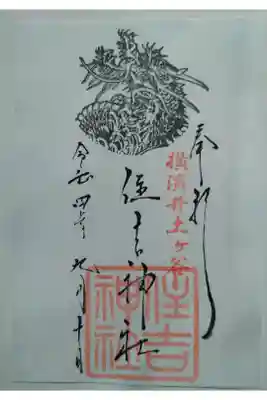 奉拝
横濱井土ヶ谷
住吉神社
令和四年九月十日
住吉
神社